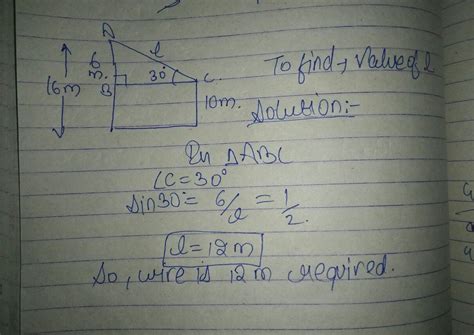 A
6
m.
l
16m
B
30°
C.
10m.
To find → Value of l
Solution:-
In △ABC
∠C=30°
Sin30°= 6/l = 1/2.
l=12m
So, wire is 12m required.